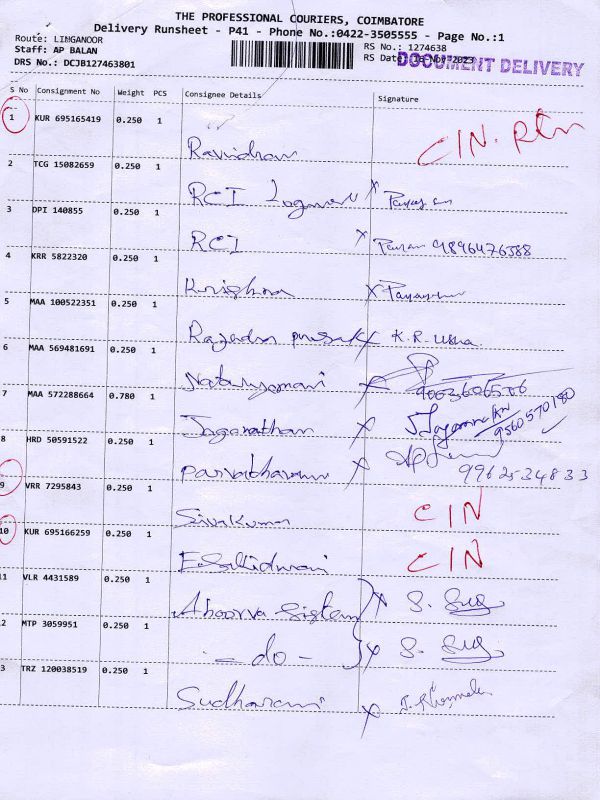 THE PROFESSIONAL COURIERS, COIMBATORE
Delivery Runsheet - P41 - Phone No.:0422-3505555 - Page No.:1
Route: LINGANOOR
RS No.: 1274638
Staff: AP BALAN
RS Date: 16-Nov-2023
DOCUMENT DELIVERY
DRS No.: DCJB127463801
S No Consignment No Weight PCS Consignee Details Signature
1 KUR 695165419 0.250 1
CIN. Rtn
2 TCG 15082659 0.250 1
RCI
3 DPI 140855 0.250 1
RCI x 9896476388
4 KRR 5822320 0.250 1
Krishna x
5 MAA 100522351 0.250 1
x K.R. Usha.
6 MAA 569481691 0.250 1
x
7 MAA 572288664 0.780 1
Jaganathan x 9560570180
8 HRD 50591522 0.250 1
x 9962534833
9 VRR 7295843 0.250 1
Sivakumar CIN
10 KUR 695166259 0.250 1
CIN
1 VLR 4431589 0.250 1
Aboorva Sistem x S.
2 MTP 3059951 0.250 1
- do - x S.
3 TRZ 120038519 0.250 1
Sudharani x